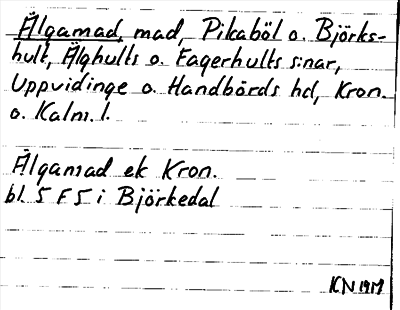 Älgamad, mad, Pikaböl o. Björks-
hult, Älghults o. Fagerhults s:nar,
Uppvidinge o. Handbörds hd, Kron.
o. Kalm. l.
Älgamad ek Kron.
bl. 5 F 5 i Björkedal